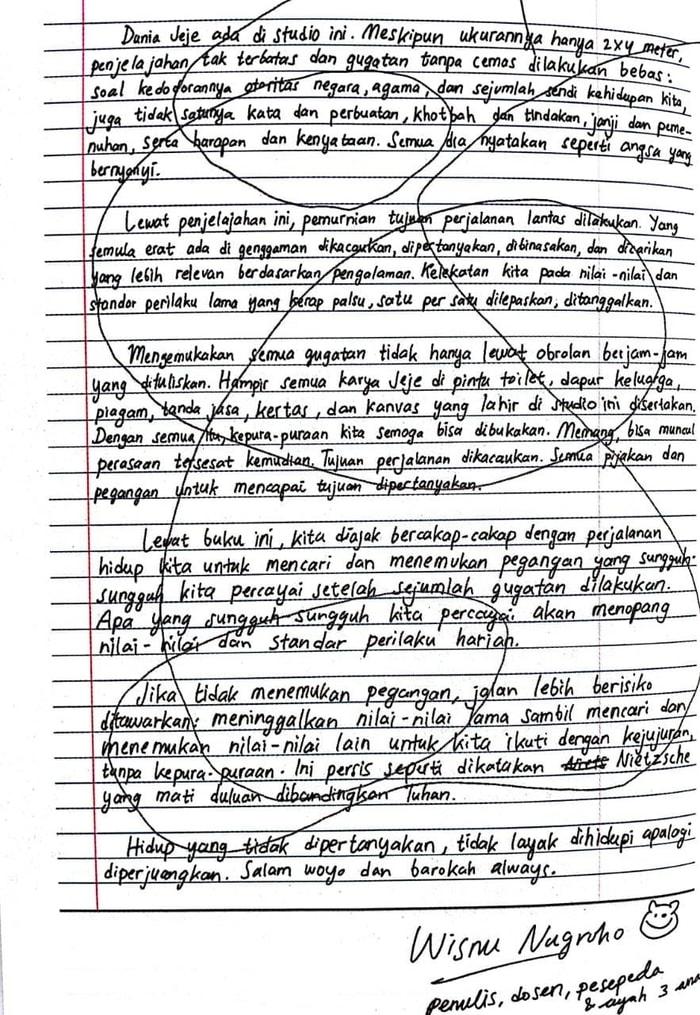 Dania Jeje ada di studio ini. Meskipun ukurannya hanya 2x4 meter,
penjelajahan tak terbatas dan gugatan tanpa cemas dilakukan bebas:
soal kedodorannya otoritas negara, agama, dan sejumlah sendi kehidupan kita,
juga tidak satunya kata dan perbuatan, khotbah dan tindakan, janji dan peme-
nuhan, serta harapan dan kenyataan. Semua dia nyatakan seperti angsa yang
bernyanyi.
Lewat penjelajahan ini, pemurnian tujuan perjalanan lantas dilakukan. Yang
semula erat ada di genggaman dikacaukan, dipertanyakan, dibinasakan, dan dicarikan
yang lebih relevan berdasarkan pengalaman. Kelekatan kita pada nilai-nilai dan
standar perilaku lama yang kerap palsu, satu per satu dilepaskan, ditanggalkan.
Mengemukakan semua gugatan tidak hanya lewat obrolan berjam-jam
yang dituliskan. Hampir semua karya Jeje di pintu toilet, dapur keluarga,
piagam, tanda jasa, kertas, dan kanvas yang lahir di studio ini disertakan.
Dengan semua itu, kepura-puraan kita semoga bisa dibukakan. Memang, bisa muncul
perasaan tersesat kemudian. Tujuan perjalanan dikacaukan. Semua pijakan dan
pegangan untuk mencapai tujuan dipertanyakan.
Lewat buku ini, kita diajak bercakap-cakap dengan perjalanan
hidup kita untuk mencari dan menemukan pegangan yang sungguh-
sungguh kita percayai setelah sejumlah gugatan dilakukan.
Apa yang sungguh-sungguh kita percayai akan menopang
nilai-nilai dan standar perilaku harian.
Jika tidak menemukan pegangan, jalan lebih berisiko
ditawarkan: meninggalkan nilai-nilai lama sambil mencari dan
menemukan nilai-nilai lain untuk kita ikuti dengan kejujuran,
tanpa kepura-puraan. Ini persis seperti dikatakan Nietzsche
yang mati duluan dibandingkan Tuhan.
Hidup yang tidak dipertanyakan, tidak layak dihidupi apalagi
diperjuangkan. Salam woyo dan barokah always.
Wisnu Nugroho
penulis, dosen, pesepeda
& ayah 3